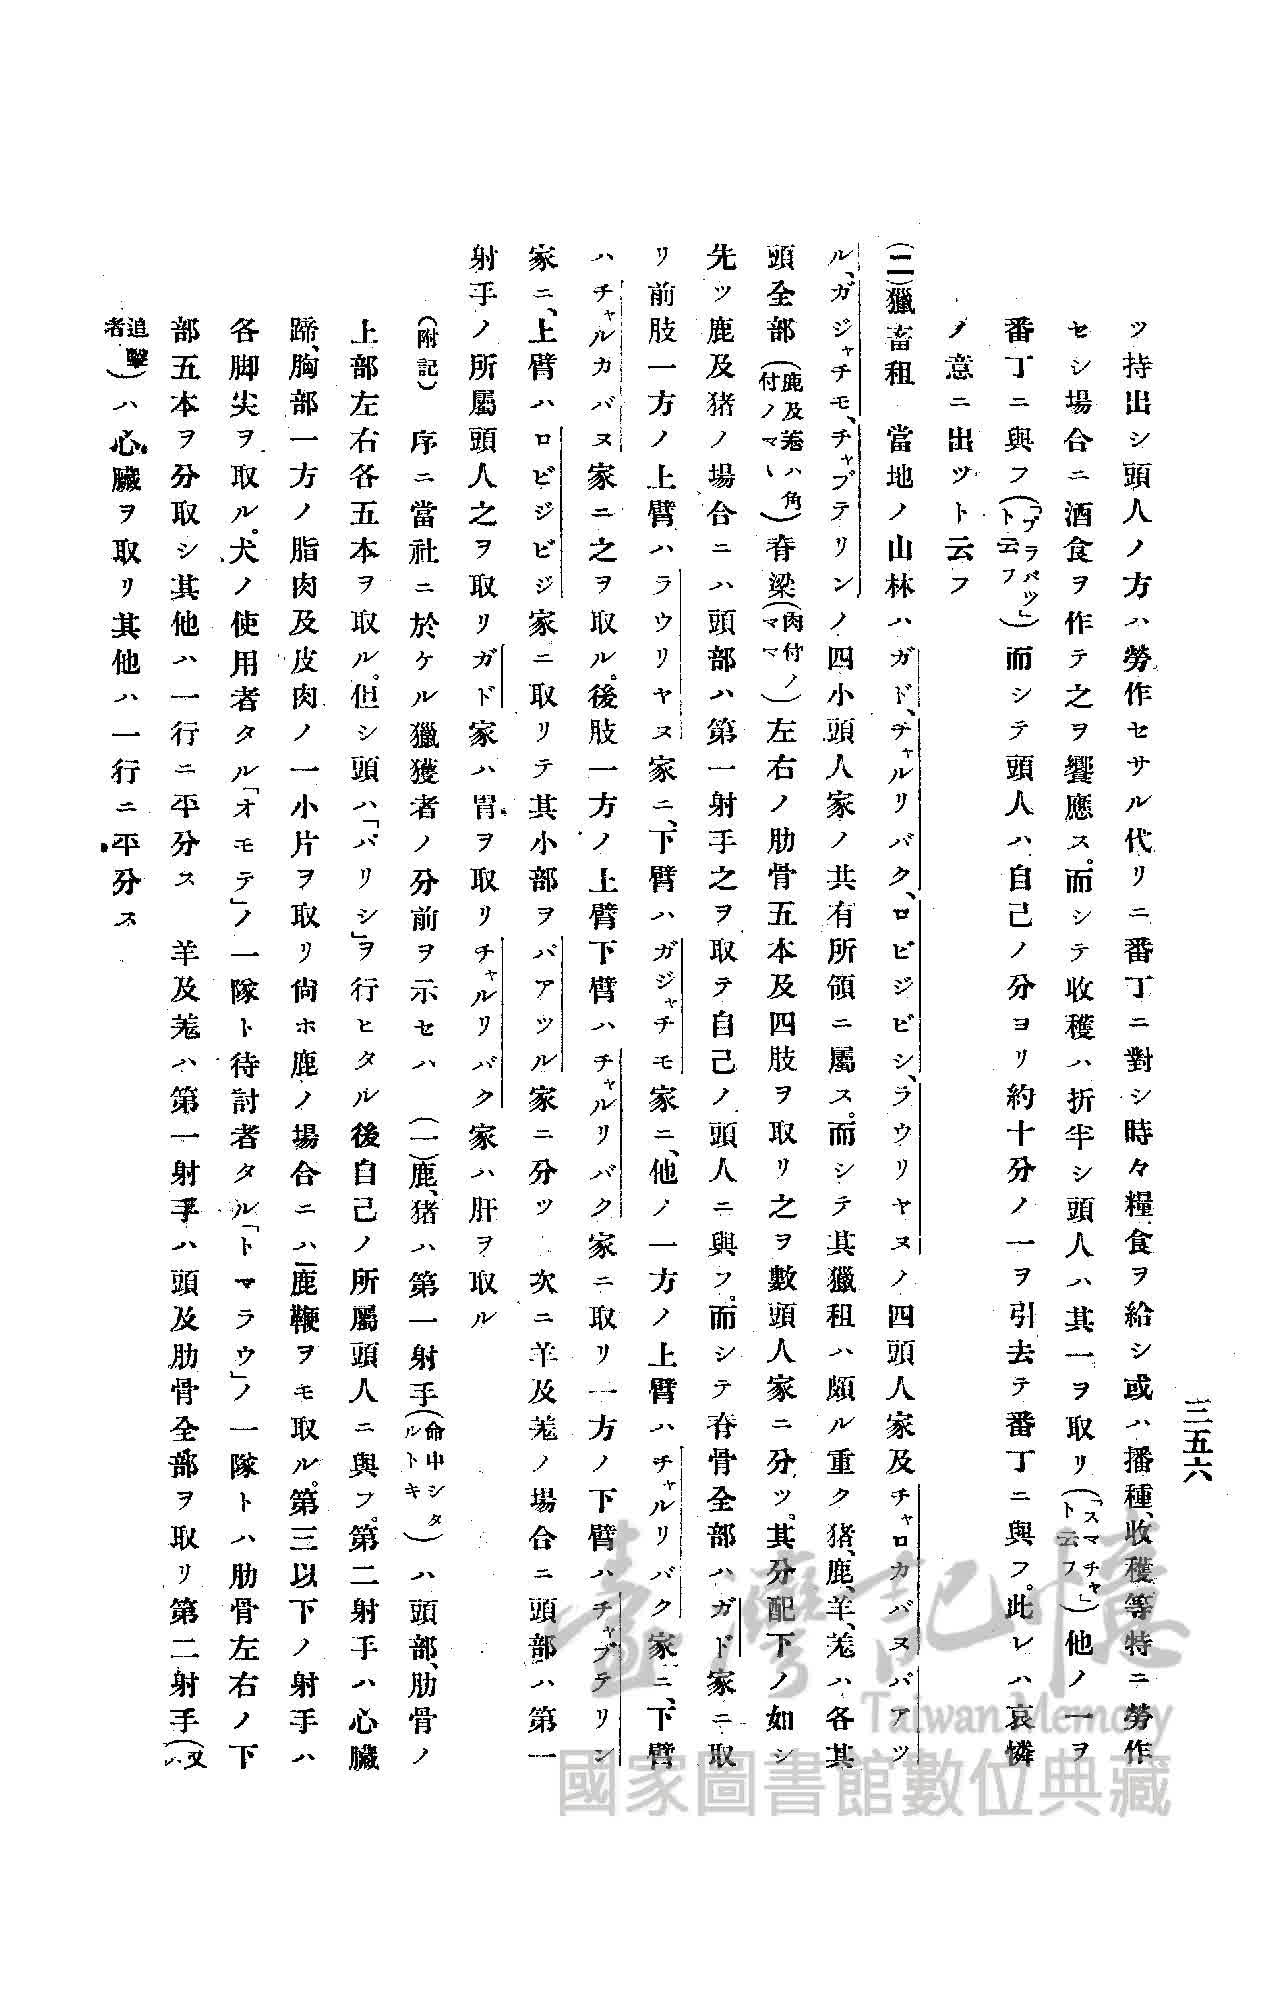 三五六
ツ持出シ頭人ノ方ハ勞作セサル代リニ番丁ニ對シ時々糧食ヲ給シ或ハ播種、收穫等特ニ勞作
セシ場合ニ酒食ヲ作テ之ヲ饗應ス。而シテ收穫ハ折半シ頭人ハ其一ヲ取リ(「スマチャ」ト云フ)他ノ一ヲ
番丁ニ與フ(「ブラパツ」ト云フ)而シテ頭人ハ自己ノ分ヨリ約十分ノ一ヲ引去テ番丁ニ與フ。此レハ哀憐
ノ意ニ出ツト云フ
(二)獵畜租 當地ノ山林ハガド、チャルリバク、ロビジビシ、ラウリヤヌノ四頭人家及チャロカバヌバアツ
ル、ガジャチモ、チャブテリンノ四小頭人家ノ共有所領ニ屬ス。而シテ其獵租ハ頗ル重ク猪、鹿、羊、羌ハ各其
頭全部(鹿及羌ハ角付ノマヽ)脊梁(肉付ノママ)左右ノ肋骨五本及四肢ヲ取リ之ヲ數頭人家ニ分ツ。其分配下ノ如シ
先ツ鹿及猪ノ場合ニハ頭部ハ第一射手之ヲ取テ自己ノ頭人ニ與フ。而シテ脊骨全部ハガド家ニ取
リ前肢一方ノ上臂ハラウリヤヌ家ニ、下臂ハガジャチモ家ニ、他ノ一方ノ上臂ハチャルリバク家ニ、下臂
ハチャルカバヌ家ニ之ヲ取ル。後肢一方ノ上臂下臂ハチャルリバク家ニ取リ一方ノ下臂ハチャブテリン
家ニ、上臂ハロビジビジ家ニ取リテ其小部ヲバアツル家ニ分ツ 次ニ羊及羌ノ場合ニ頭部ハ第一
射手ノ所屬頭人之ヲ取リガド家ハ胃ヲ取リチャルリバク家ハ肝ヲ取ル
(附記) 序ニ當社ニ於ケル獵獲者ノ分前ヲ示セハ (一)鹿、猪ハ第一射手(命中シタルトキ)ハ頭部、肋骨ノ
上部左右各五本ヲ取ル。但シ頭ハ「バリシ」ヲ行ヒタル後自己ノ所屬頭人ニ與フ。第二射手ハ心臟
蹄、胸部一方ノ脂肉及皮肉ノ一小片ヲ取リ尙ホ鹿ノ場合ニハ鹿鞭ヲモ取ル。第三以下ノ射手ハ
各脚尖ヲ取ル。犬ノ使用者タル「オモテ」ノ一隊ト待討者タル「トマラウ」ノ一隊トハ肋骨左右ノ下
部五本ヲ分取シ其他ハ一行ニ平分ス 羊及羌ハ第一射手ハ頭及肋骨全部ヲ取リ第二射手(又ハ
追擊者)ハ心臟ヲ取リ其他ハ一行ニ平分ス
臺灣記憶
Taiwan Memory
國家圖書館數位典藏